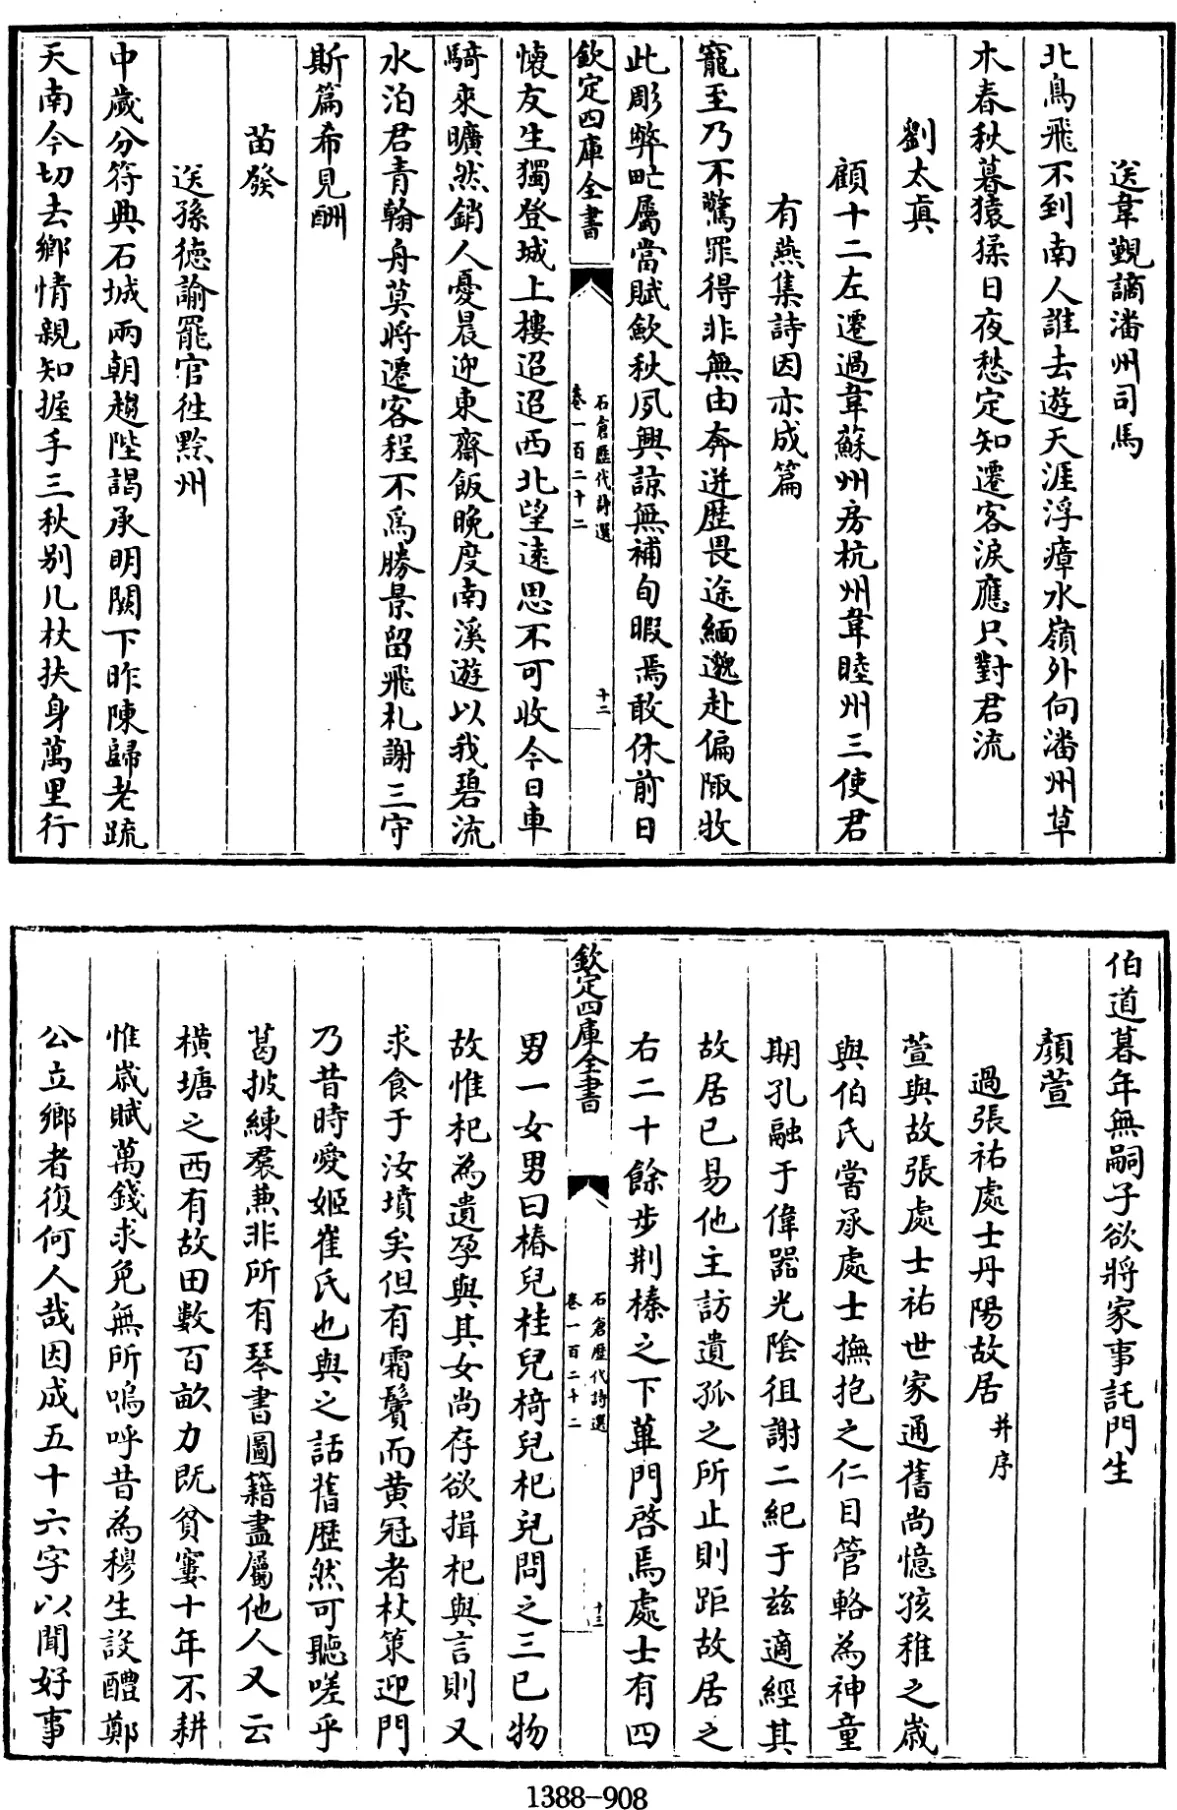 送韋覲謫潘州司馬
北鳥飛不到南人誰去遊天涯浮瘴水嶺外向潘州草
木春秋暮猿猱日夜愁定知遷客淚應只對君流
劉太真
顧十二左遷過韋蘇州房杭州韋睦州三使君
有燕集詩因亦成篇
寵至乃不驚罪得非無由奔迸歴畏途緬邈赴偏陬牧
此彫弊甿屬當賦歛秋夙興諒無補旬暇焉敢休前日
欽定四庫全書
石倉歴代詩選
卷一百二十二
十二
懐友生獨登城上樓迢迢西北望遠思不可收今日車
騎來曠然銷人憂晨迎東齋飯晩度南溪遊以我碧流
水泊君青翰舟莫將遷客程不為勝景留飛札謝三守
斯篇希見酬
苗發
送孫徳諭罷官徃黔州
中歲分符典石城兩朝趨陛謁承明闕下昨陳歸老疏
天南今切去鄉情親知握手三秋别几杖扶身萬里行
伯道暮年無嗣子欲將家事託門生
顔萱
過張祐處士丹陽故居 并序
萱與故張處士祐世家通舊尚憶孩稚之歳
與伯氏嘗承處士撫抱之仁目管輅為神童
期孔融于偉器光陰徂謝二紀于兹適經其
故居已易他主訪遺孤之所止則距故居之
右二十餘步荆榛之下蓽門啓焉處士有四
欽定四庫全書
石倉歴代詩選
卷一百二十二
十三
男一女男曰椿兒桂兒椅兒杞兒問之三已物
故惟杞為遺孕與其女尚存欲揖杞與言則又
求食于汝墳矣但有霜鬢而黄冠者杖策迎門
乃昔時愛姬崔氏也與之話舊歴然可聽嗟乎
葛帔練裠兼非所有琴書圖籍盡屬他人又云
横塘之西有故田數百畝力既貧窶十年不耕
惟歳賦萬錢求免無所嗚呼昔為穆生設醴鄭
公立鄉者復何人哉因成五十六字以聞好事
1388-908